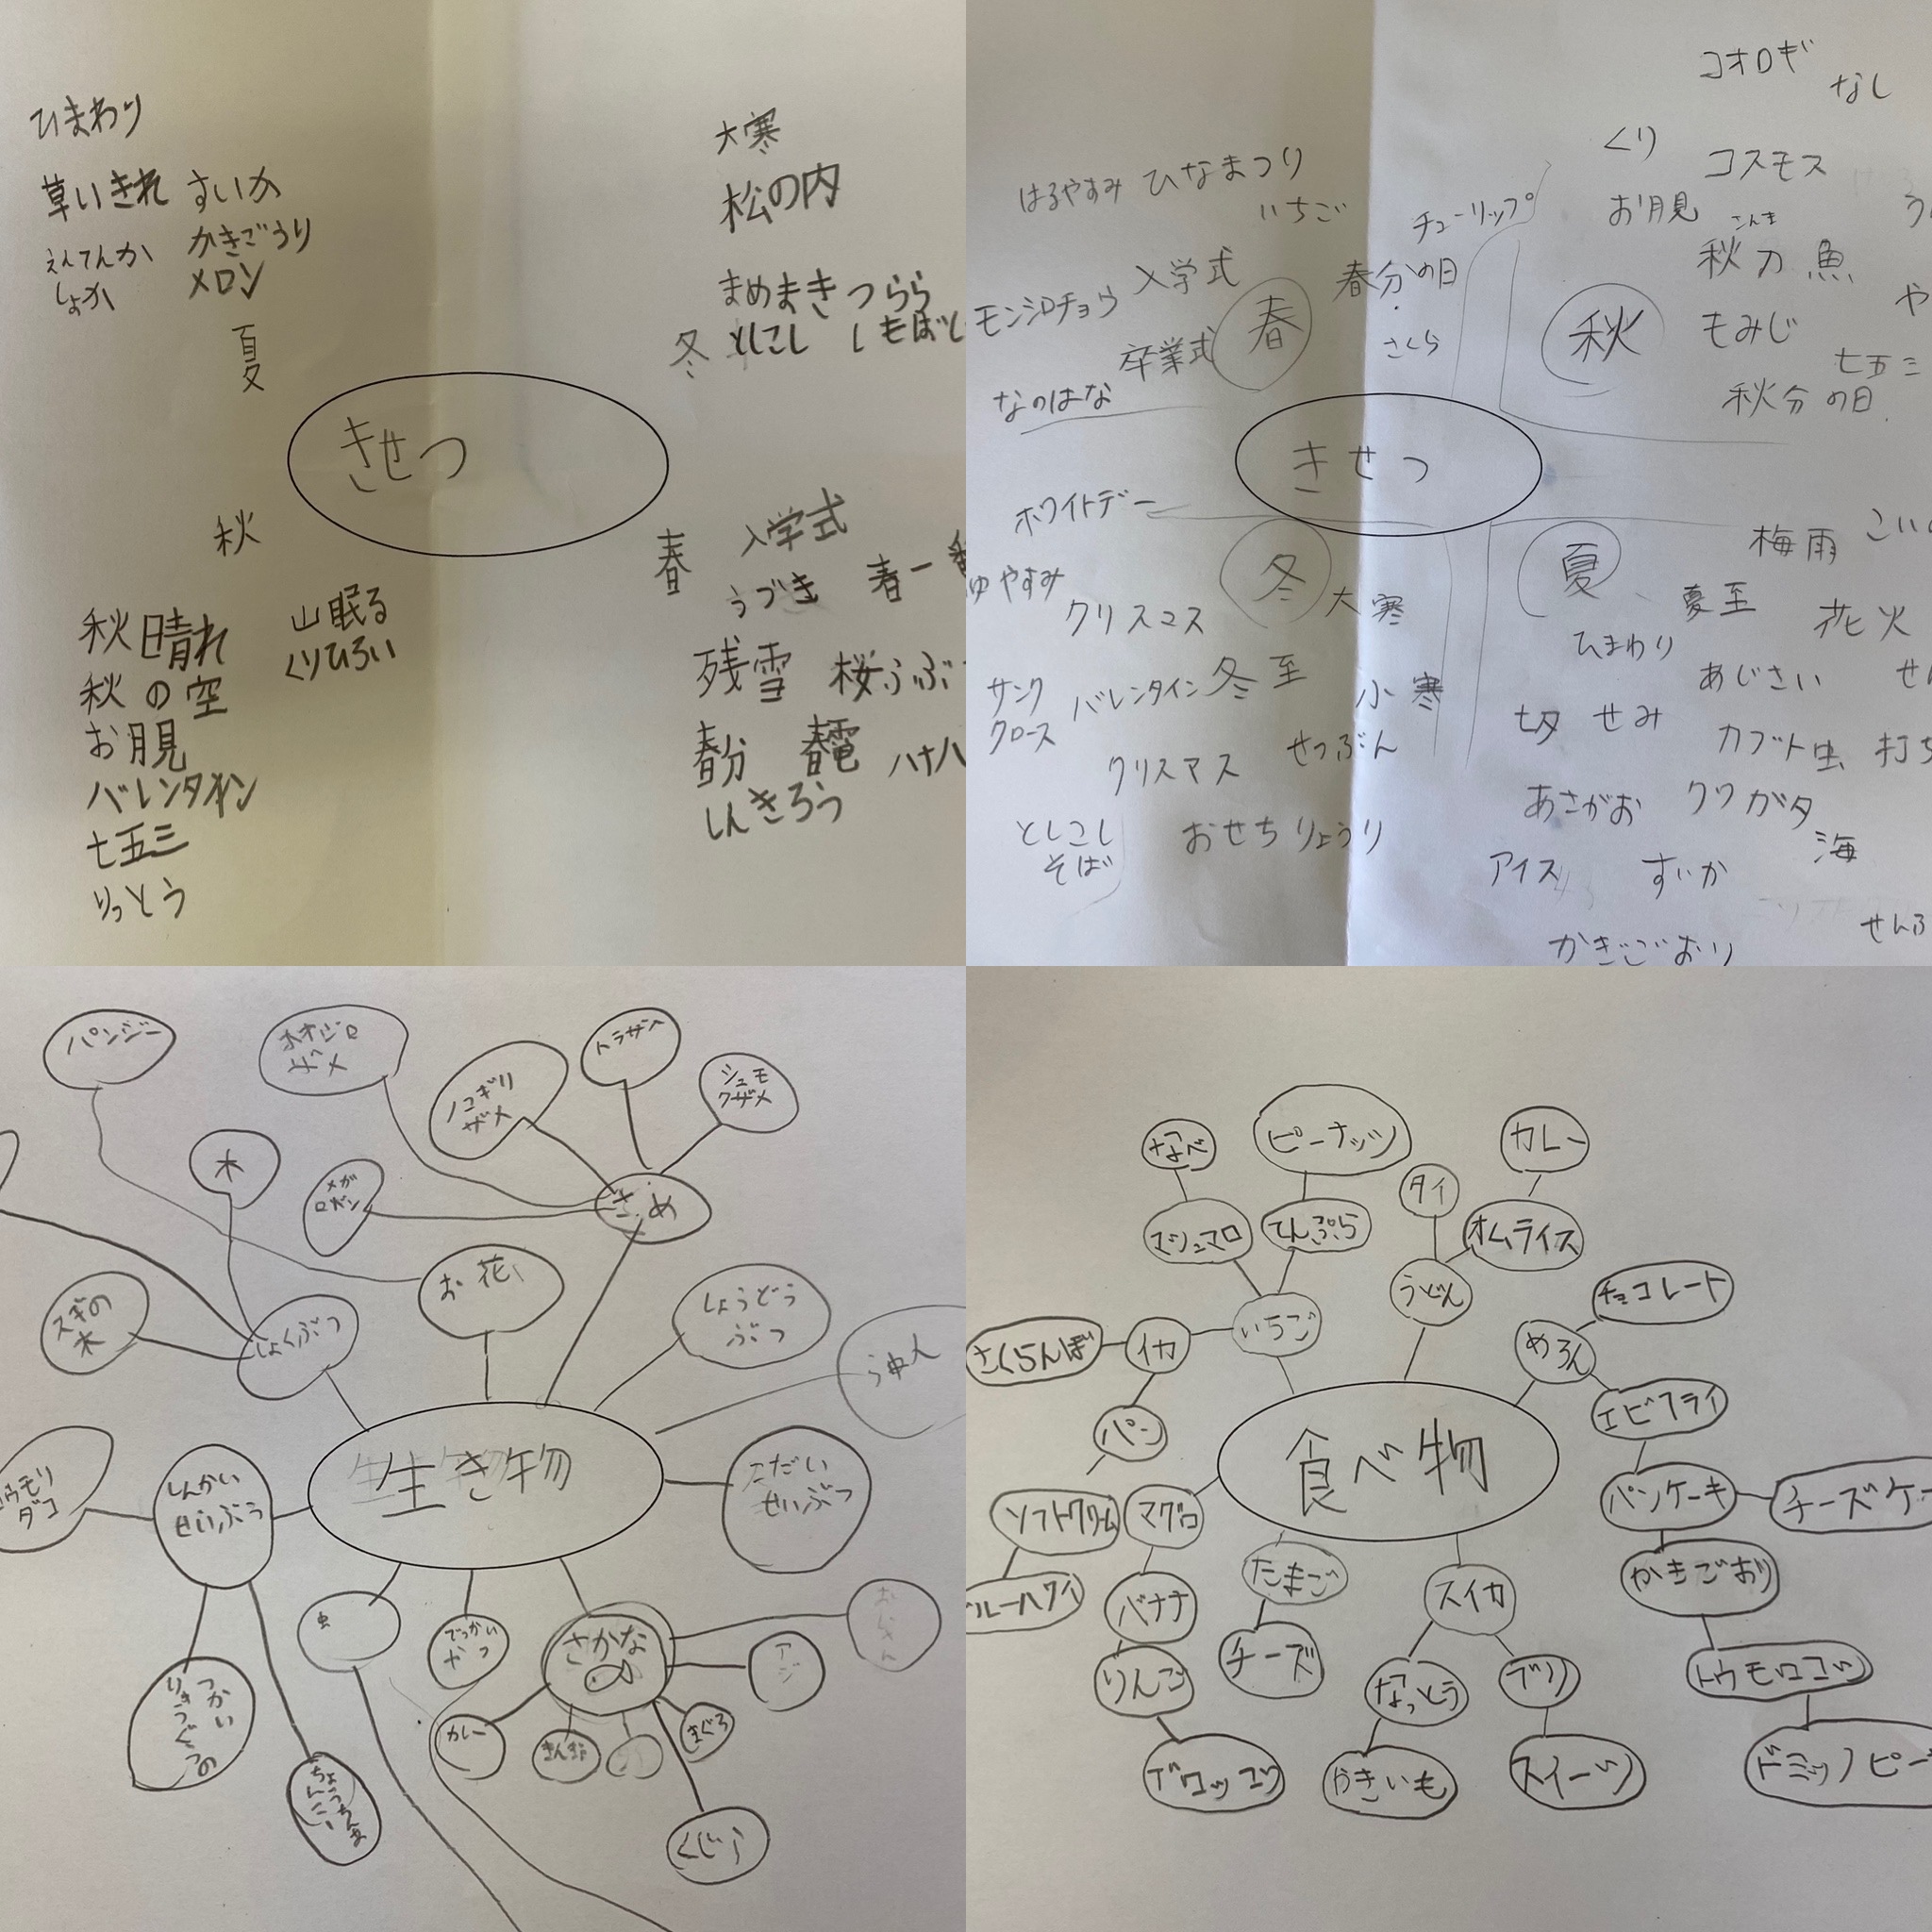 ひまわり
草いきれ すいか
えんてんか かきごうり
しょか メロン
夏
大寒
松の内
まめまき つらら
冬 としこし
きせつ
秋
秋晴れ 山眠る
秋の空 くりひろい
お月見
バレンタイン
七五三
りっとう
春 入学式
うづき 春一
残雪
春分 春雷
しんきろう
コオロギ
なし
くり
コスモス
お月見
さんま
秋刀魚
もみじ
七五三
秋分の日
秋
はるやすみ ひなまつり
いちご
チューリップ
入学式
春
春分の日
モンシロチョウ
卒業式
さくら
なのはな
きせつ
ホワイトデー
冬
大寒
ゆやすみ
クリスマス
サンタ
クロース
バレンタイン
冬至
小寒
せつぶん
クリスマス
としこし
そば
おせちりょうり
夏
梅雨
夏至
花火
ひまわり
あじさい
七夕 せみ
カブト虫
あさがお
クワガタ
海
アイス
すいか
かきごおり
パンジー
ホオジロ
ザメ
ノコギリ
ザメ
トラザメ
シュモ
クザメ
木
メガ
ロドン
さめ
お花
しょうどう
ぶつ
スギの
木
しょくぶつ
生き物
こだい
せいぶつ
しんかい
せいぶつ
コウモリ
ダコ
虫
でっかい
やつ
さかな
アジ
カレー
きんぎょ
まぐろ
くじら
りゅうぐうの
つかい
ちょうちん
あんこう
なべ
ピーナッツ
カレー
タイ
マシュマロ
てんぷら
オムライス
うどん
チョコレート
さくらんぼ
イカ
いちご
めろん
パン
エビフライ
食べ物
ソフトクリーム
マグロ
パンケーキ
チーズケー
ルーハワイ
バナナ
たまご
スイカ
かきごおり
りんご
チーズ
なっとう
ブリ
トウモロコシ
ブロッコリ
やきいも
スイーツ
ドミノピ